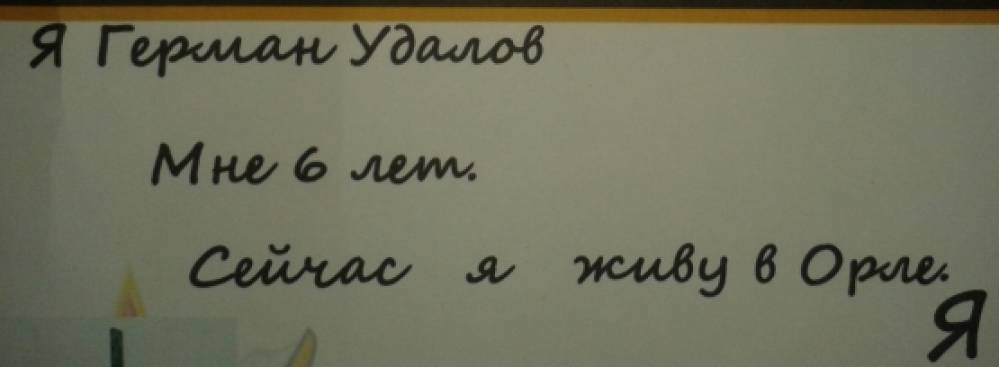 Я Герман Удалов
Мне 6 лет.
Сейчас я живу в Орле.
Я